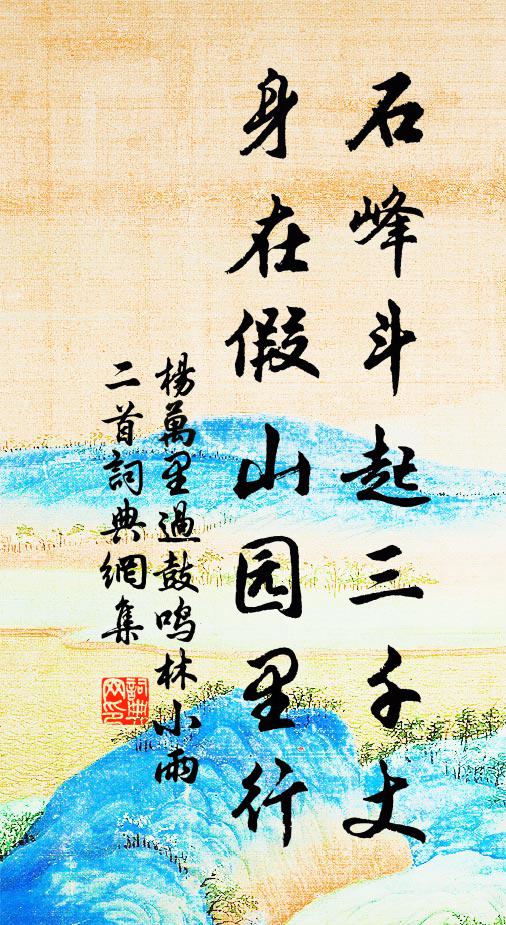 石峰斗起三千丈
身在假山园里行
楊萬里過鼓鸣林小雨
二首詞典網集
詞典
网印